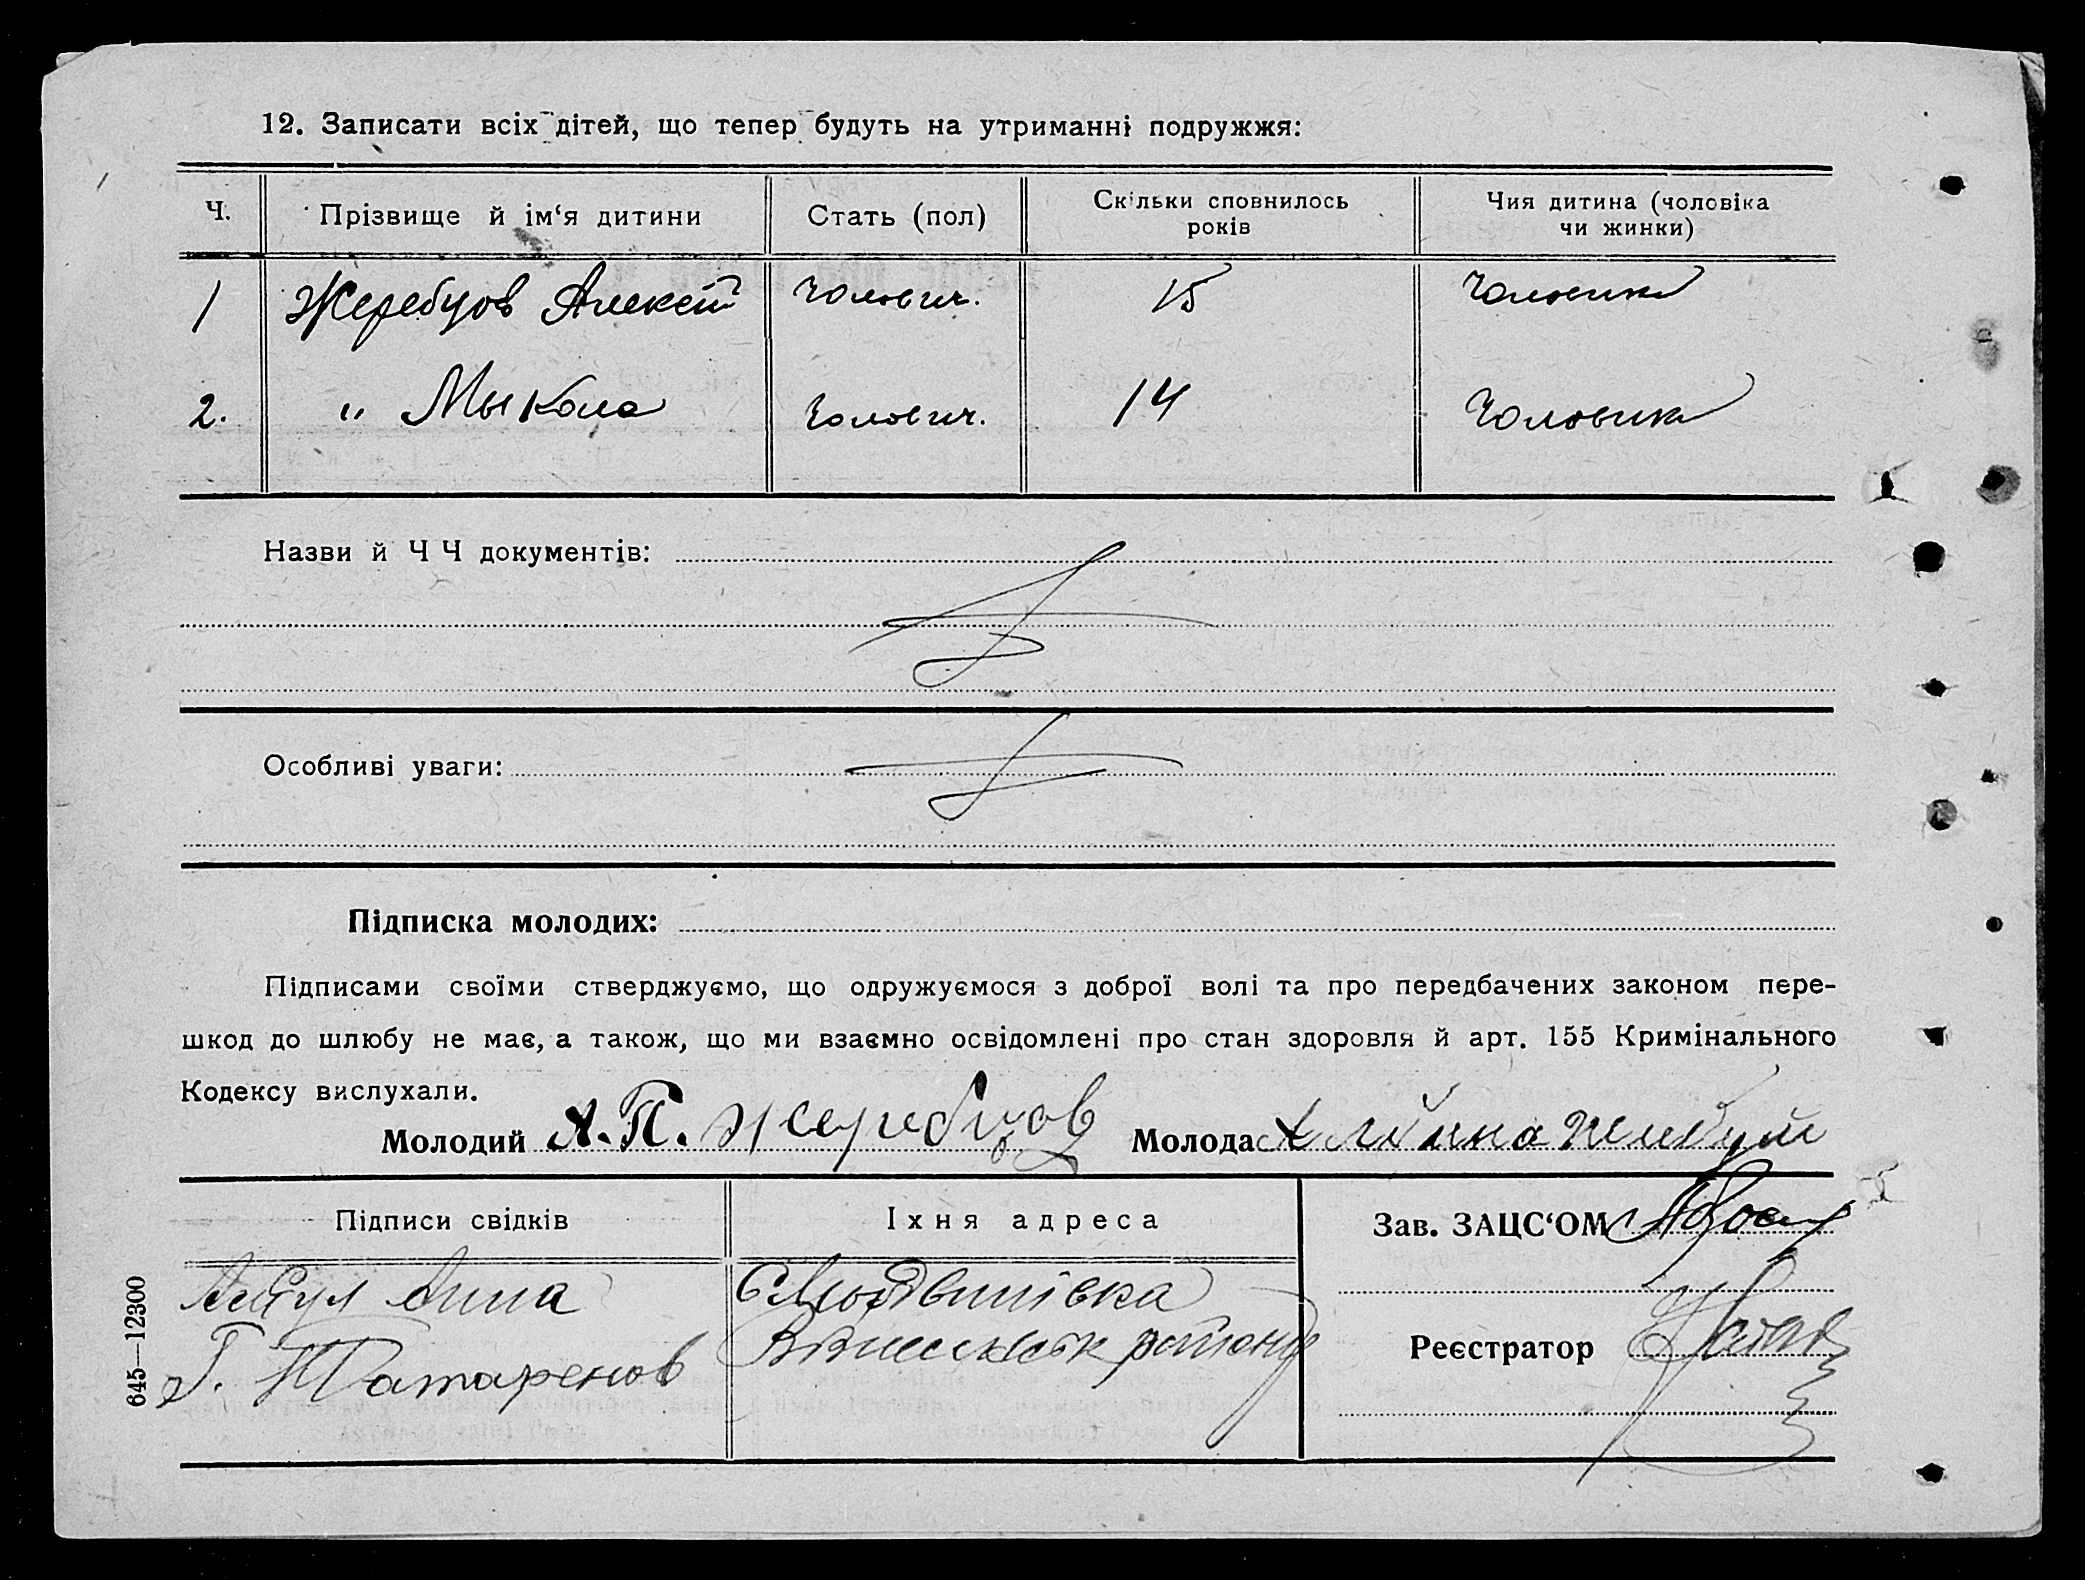 12. Записати всіх дітей, що тепер будуть на утриманні подружжя:
Ч. Прізвище й ім‘я дитини Стать (пол) Скільки сповнилось років Чия дитина (чоловіка чи жинки)
1 Жеребцов Алексей чолович. 15 Чоловика
2. „ Мыкола чолович. 14 Чоловика
Назви й Ч Ч документів:
Особливі уваги:
Підписка молодих:
Підписами своїми стверджуємо, що одружуємося з доброї волі та про передбачених законом пере-
шкод до шлюбу не має, а також, що ми взаємно освідомлені про стан здоровля й арт. 155 Кримінального
Кодексу вислухали.
Молодий А.П. Жеребцов Молода
Підписи свідків Їхня адреса Зав. ЗАЦС‘ОМ
Анна
Г. Татаренов району
Реєстратор
645—12300